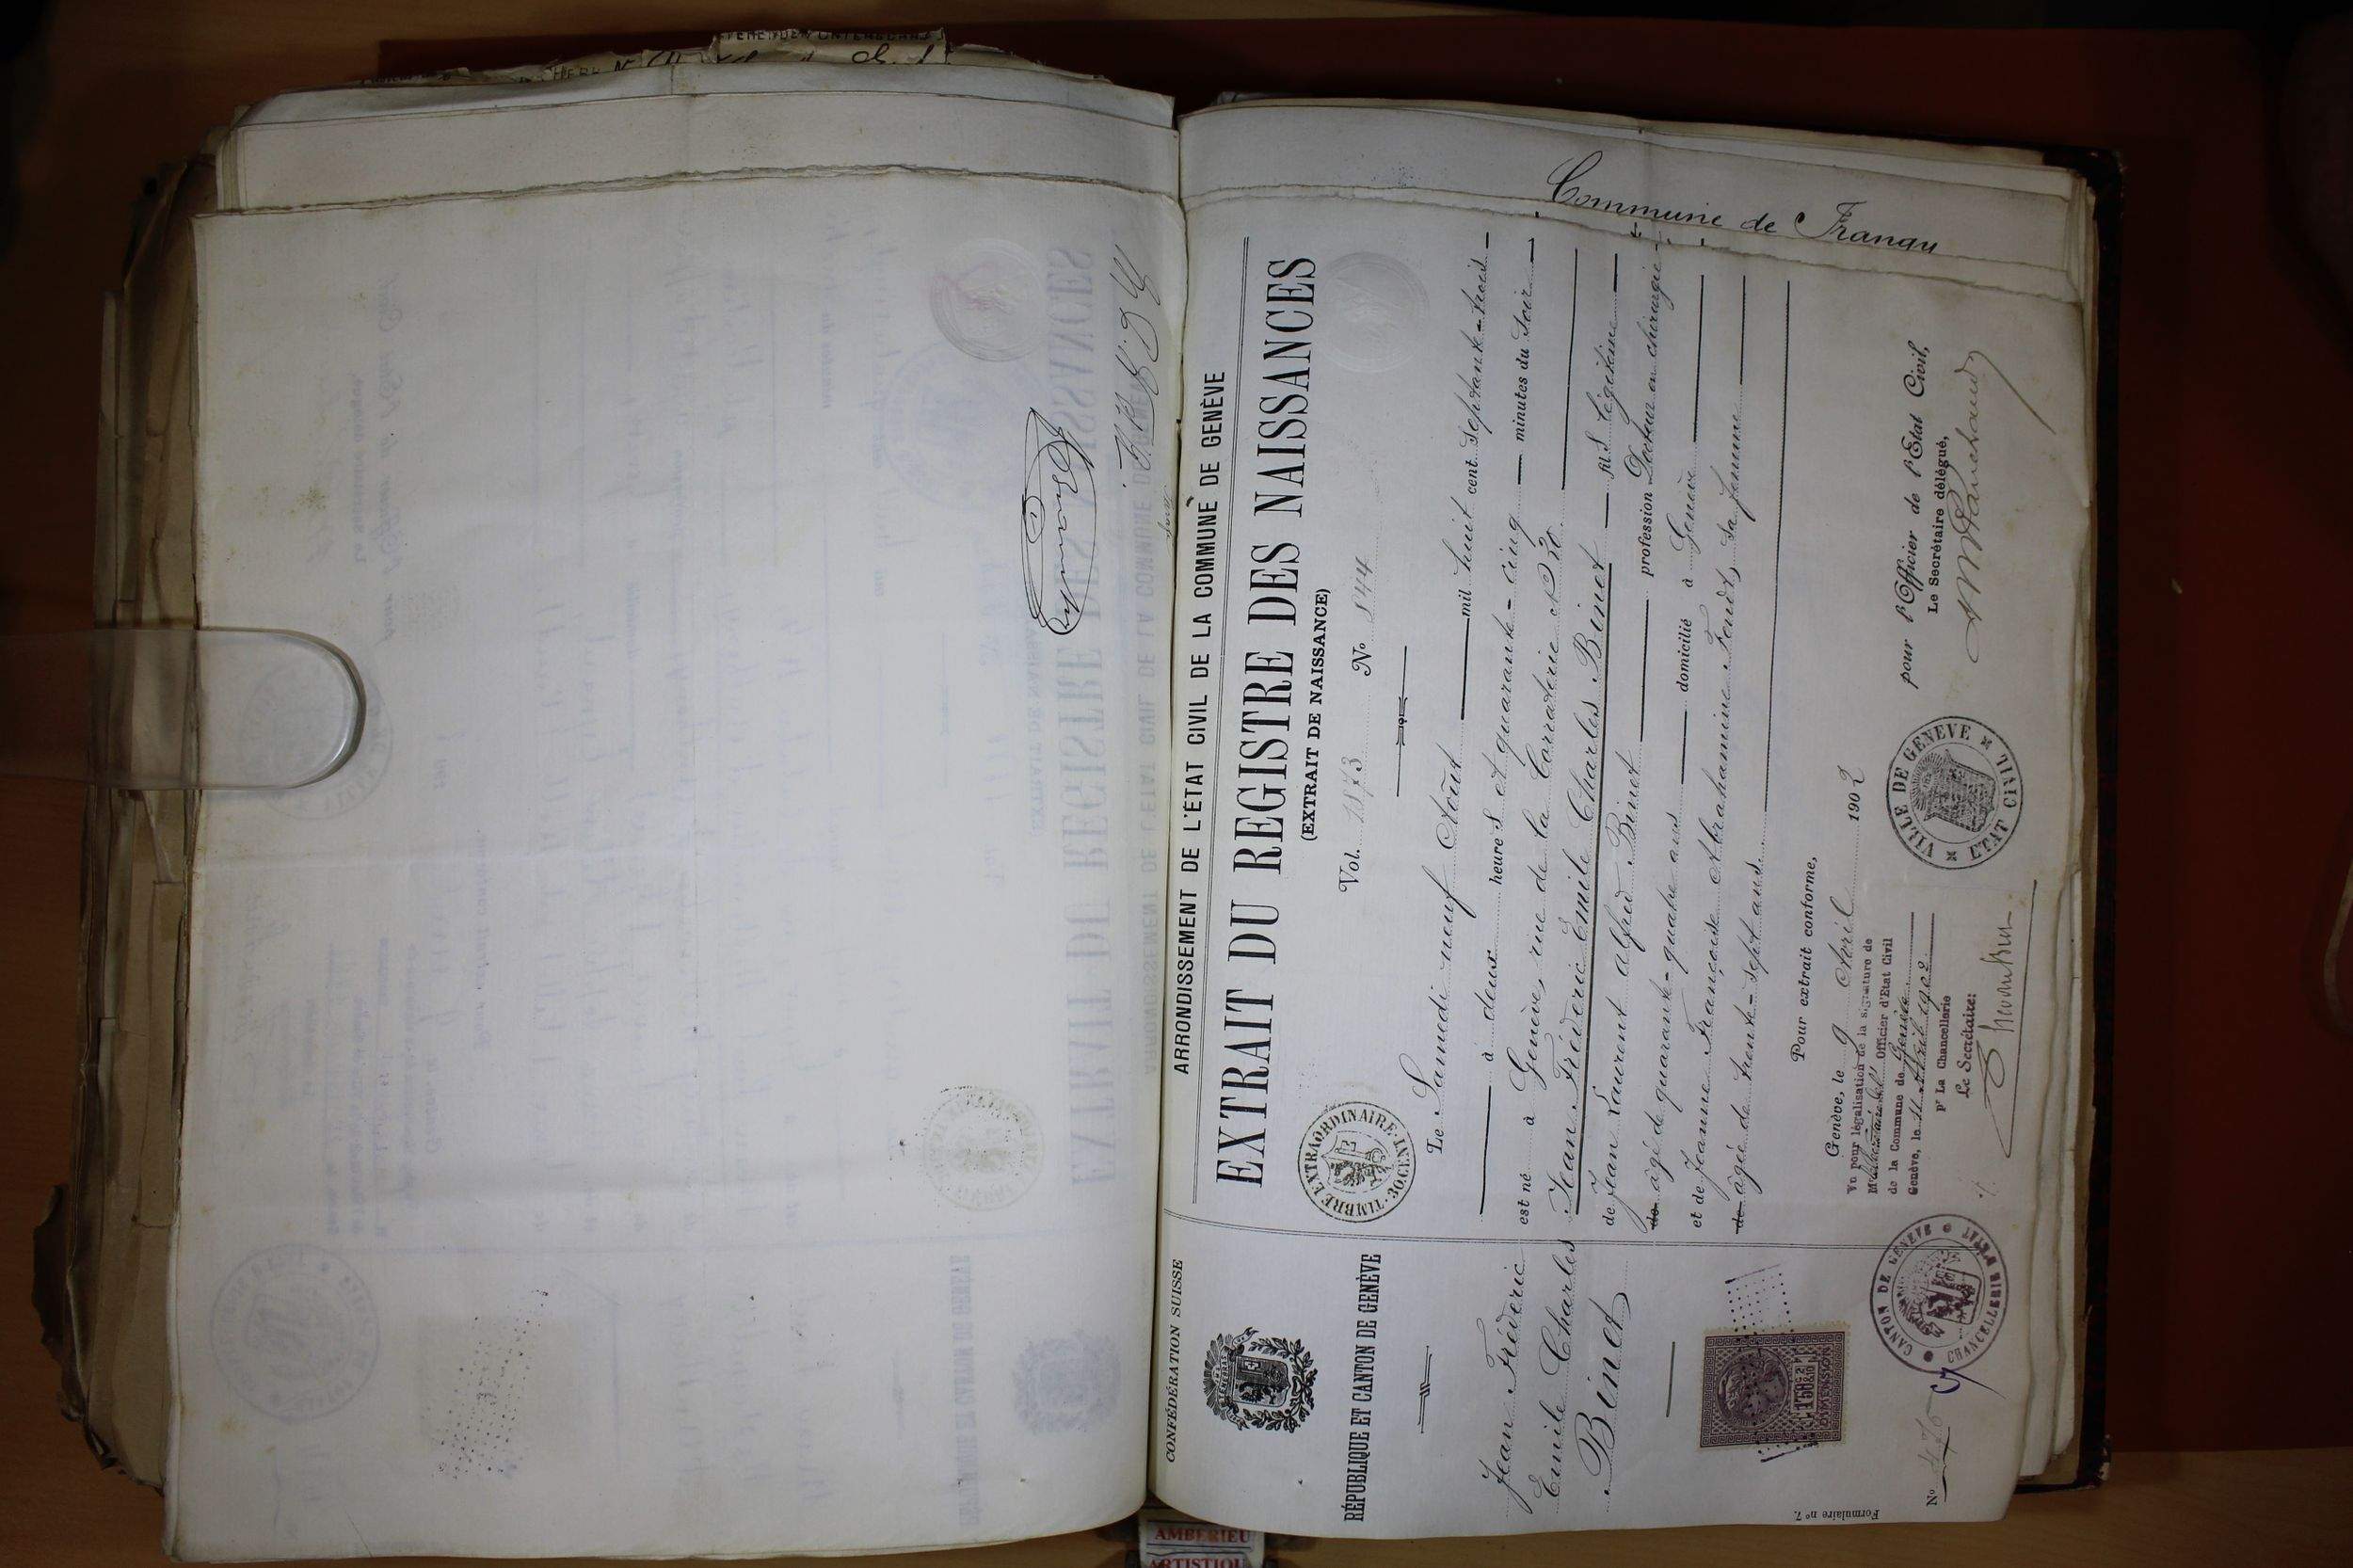 Commune de Franqu
CONFÉDÉRATION SUISSE
RÉPUBLIQUE ET CANTON DE GENÈVE
Jean Fréderic
Emile Charles
Binet
DIMENSION
CANTON DE GENÈVE
CHANCELLERIE
No
Formulaire no 7.
ARRONDISSEMENT DE L'ÉTAT CIVIL DE LA COMMUNE DE GENÈVE
EXTRAIT DU REGISTRE DES NAISSANCES
(EXTRAIT DE NAISSANCE)
TIMBRE EXTRAORDINAIRE · 30 CENT
Vol. 1873 No 844
Le Samedi neuf Août mil huit cent septante-trois
à deux heures et quarante-cinq minutes du Soir
est né à Genève, rue de la Corraterie No 20.
Jean Fréderic Emile Charles Binet fils légitime
de Jean Laurent Alfred Binet profession Docteur en chirurgie
de âgé de quarante-quatre ans domicilié à Genève
et de Jeanne Françoise Abrahamine Fendt, sa femme
de âgée de trente-sept ans.
Pour extrait conforme,
Genève, le 9 Avril 1902
Vu pour légalisation de la signature de
Officier d'Etat Civil
de la Commune de Genève
Genève, le 11 Avril 1902.
pr La Chancellerie
Le Secrétaire:
VILLE DE GENÈVE
ETAT CIVIL
pour l'Officier de l'Etat Civil,
Le Secrétaire délégué,
AMBERIEU
ARTISTIQU